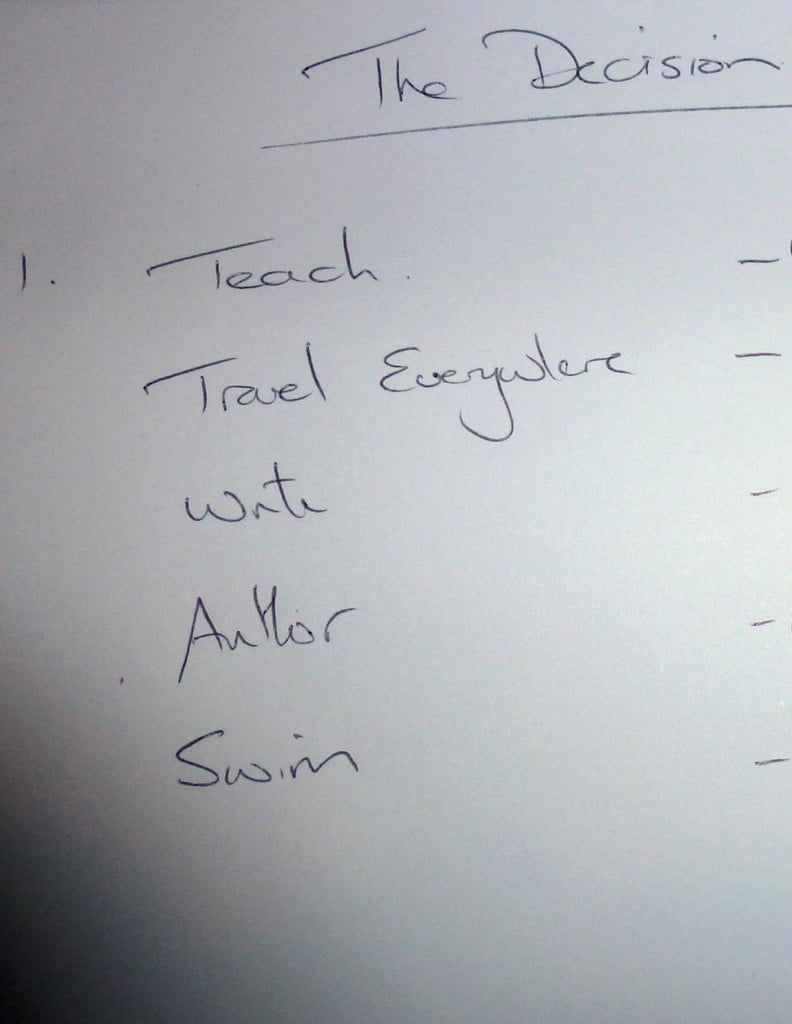 The Decision
1. Teach. -
Travel Everywhere -
Write -
Author -
Swim -